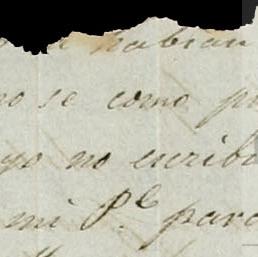 habian
no se como
yo no escribo
mi pe para